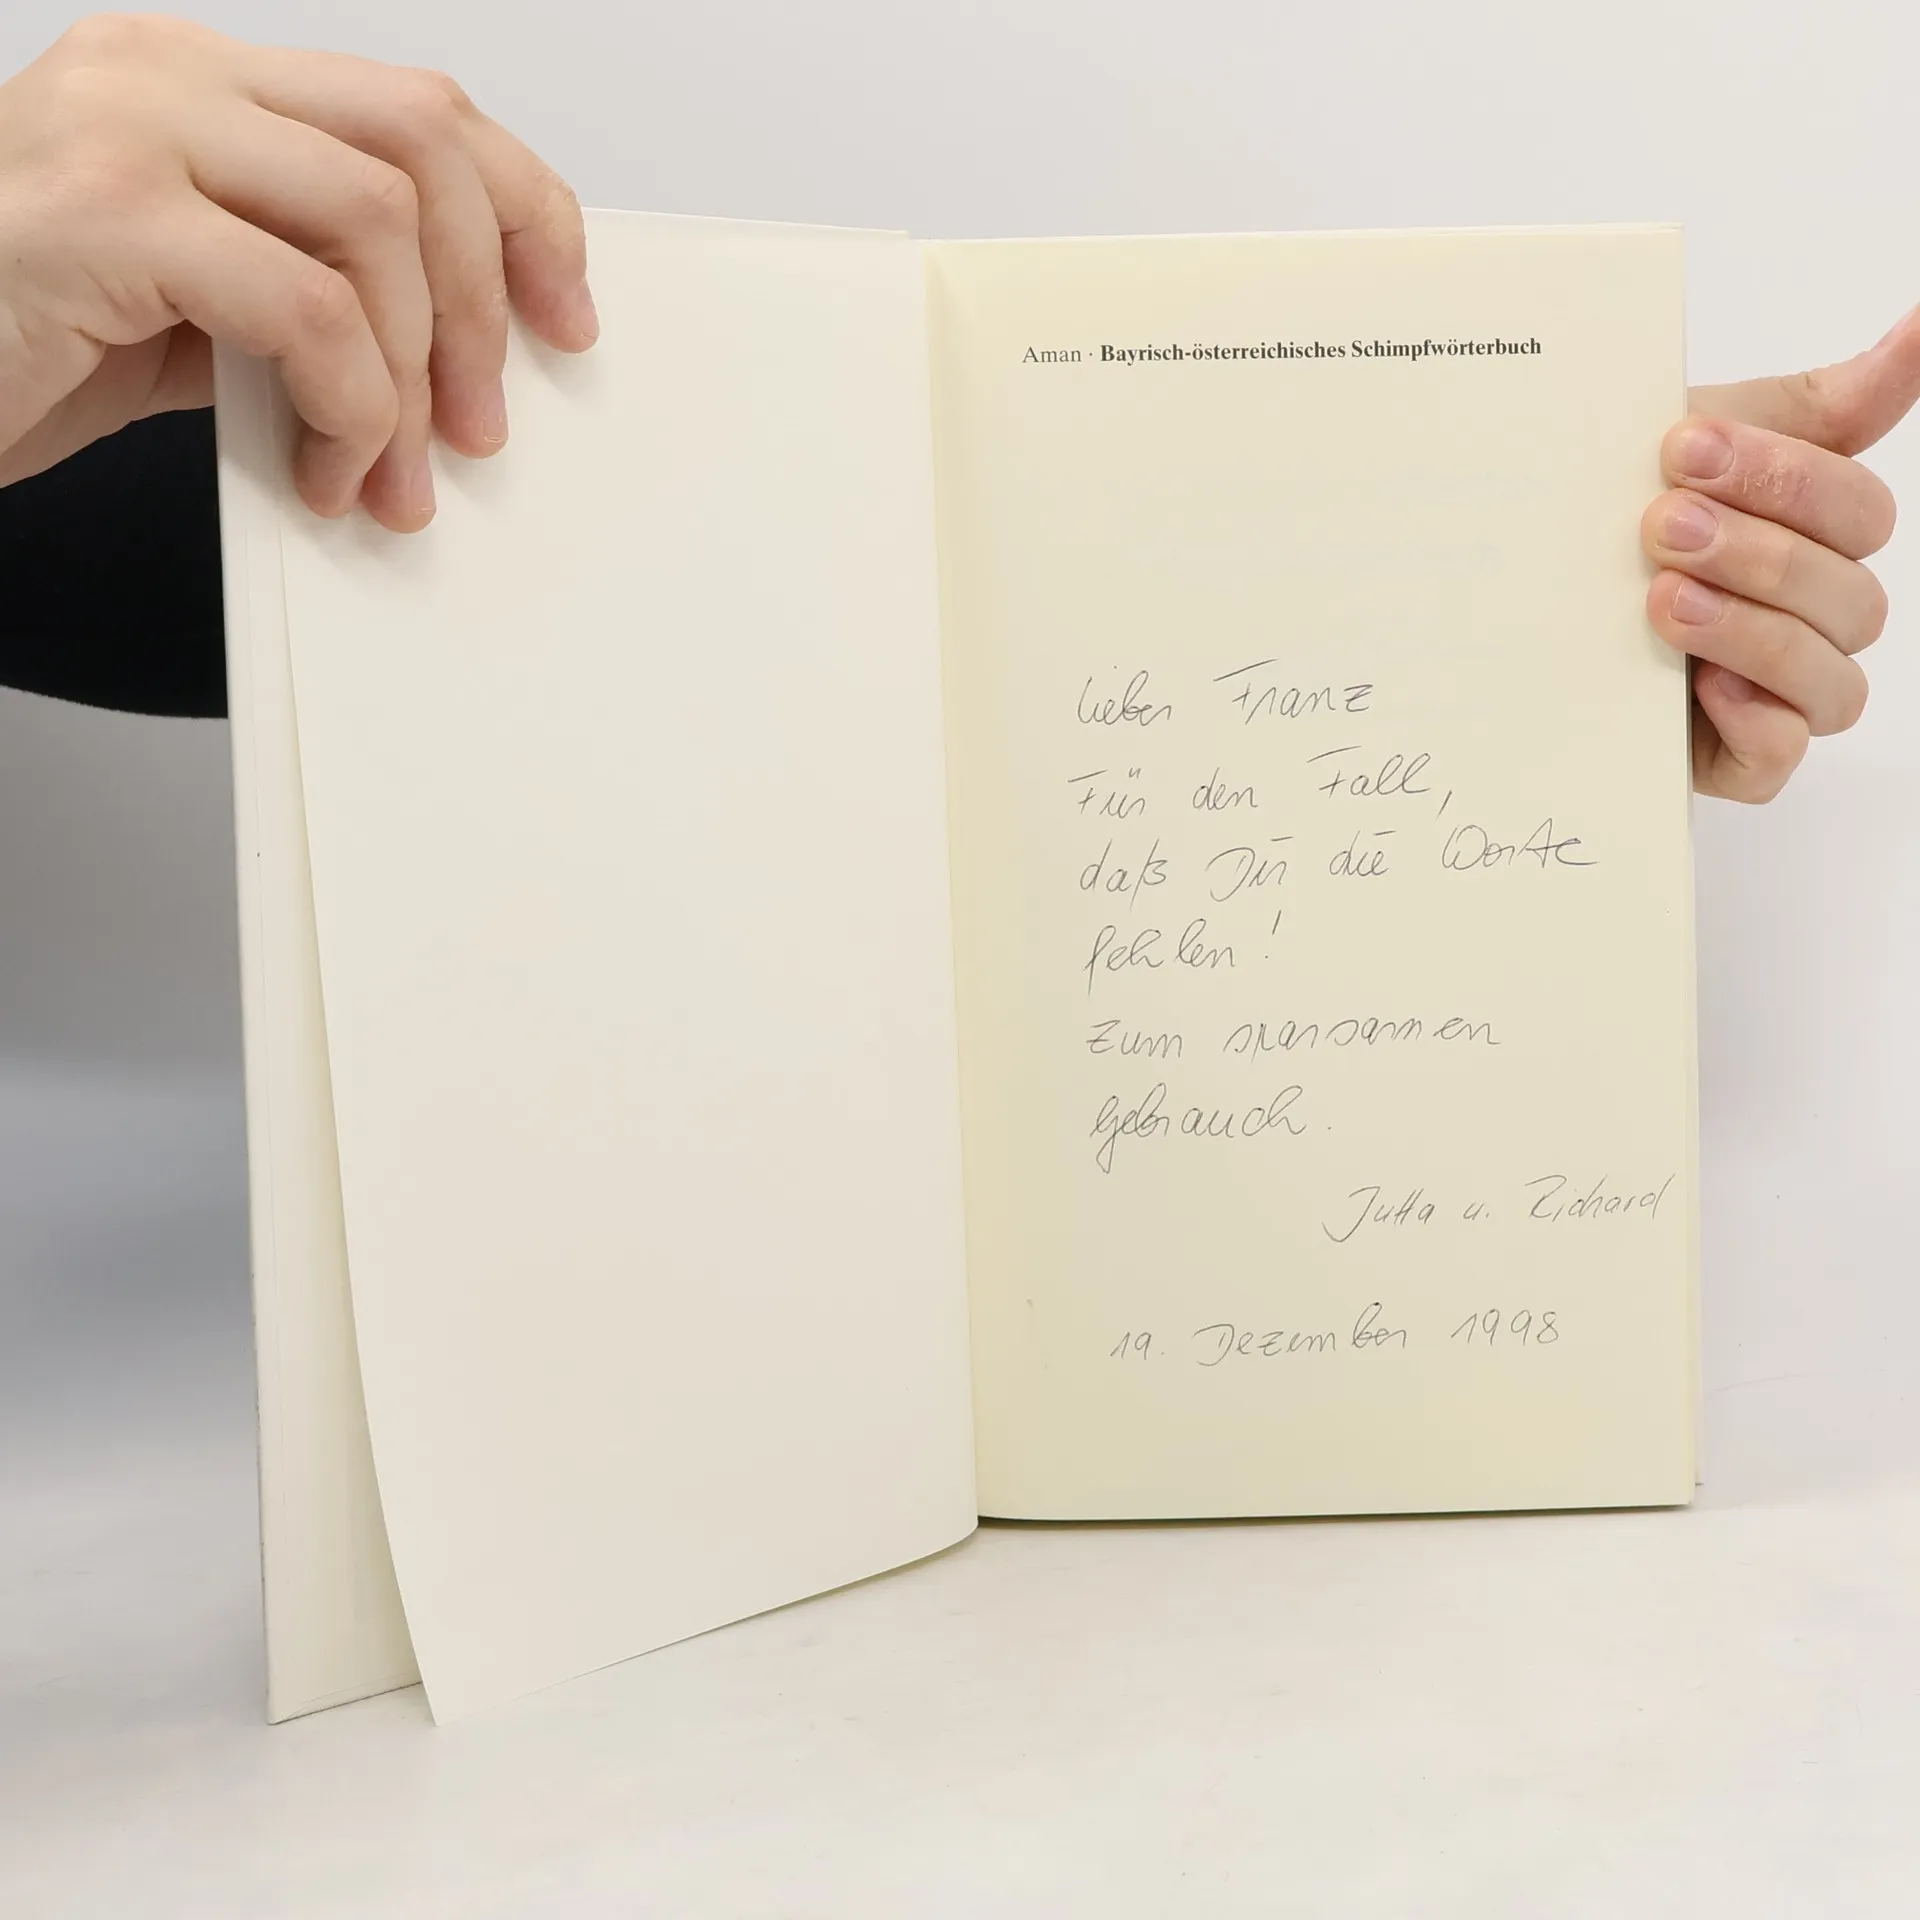 Aman · Bayrisch-österreichisches Schimpfwörterbuch
Lieber Franz
Für den Fall,
daß Dir die Worte
fehlen!
zum sparsamen
gebrauch.
Jutta u. Richard
19. Dezember 1998